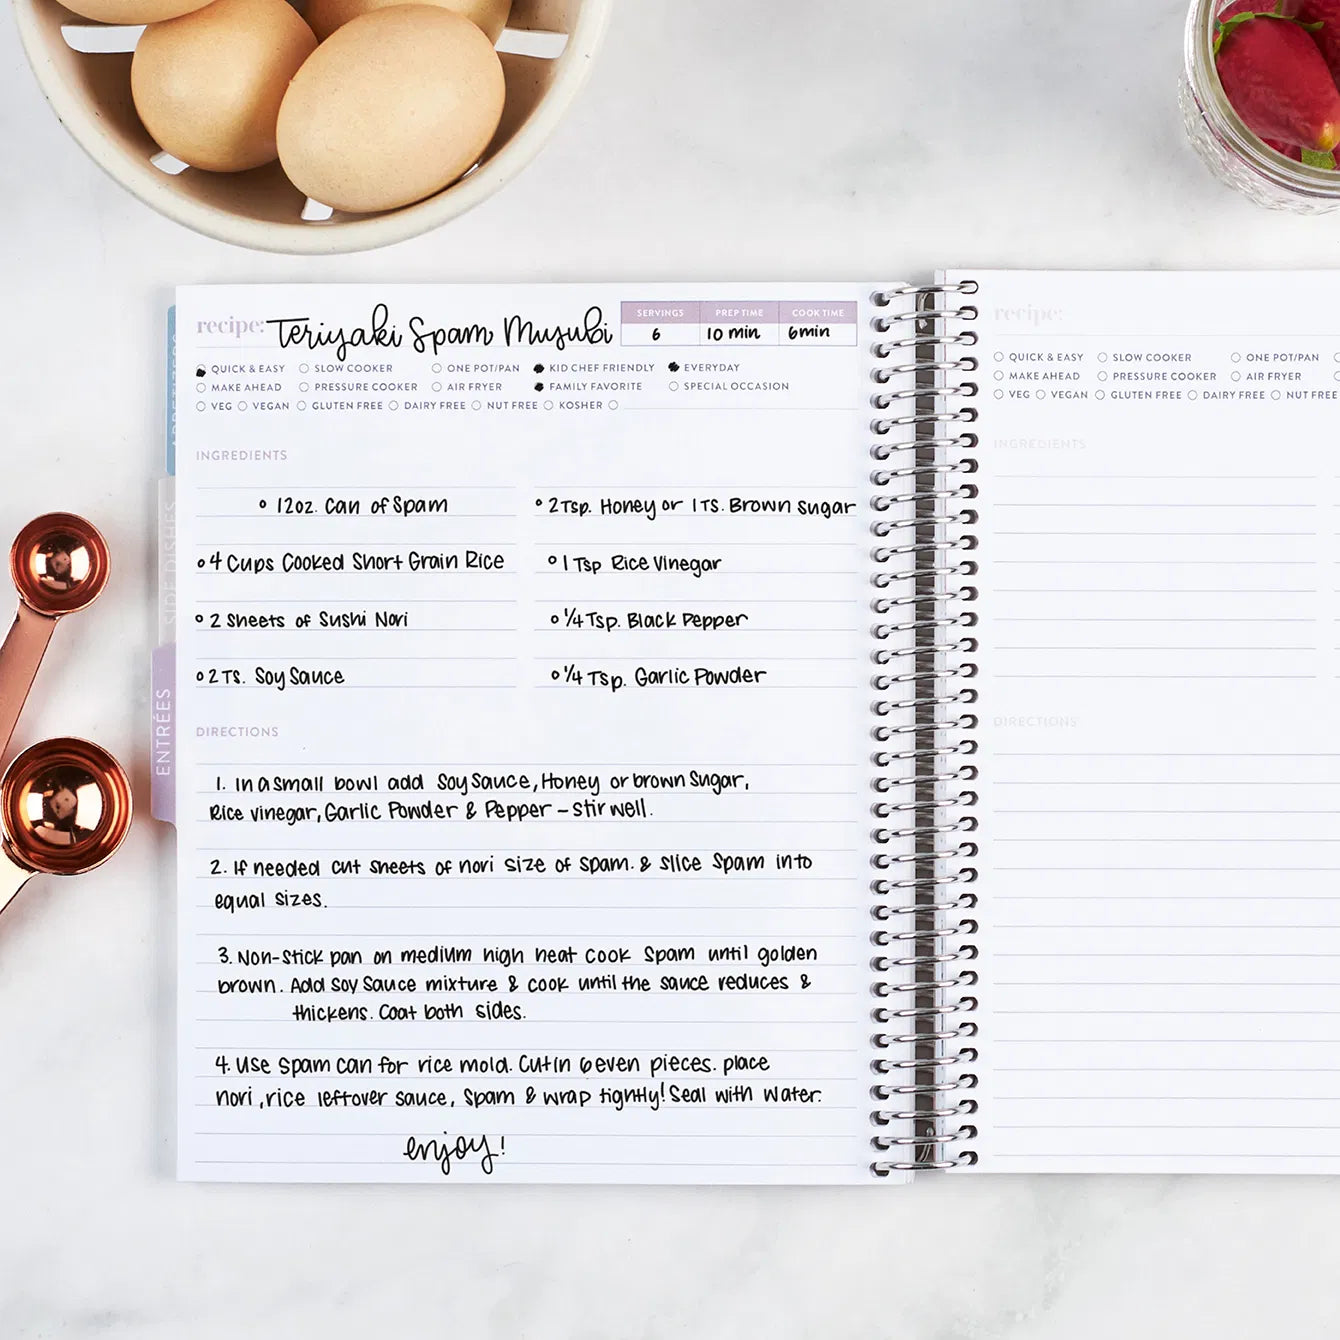 recipe: Teriyaki Spam Musubi
SERVINGS PREP TIME COOK TIME
6 10 min 6min
QUICK & EASY SLOW COOKER ONE POT/PAN KID CHEF FRIENDLY EVERYDAY
MAKE AHEAD PRESSURE COOKER AIR FRYER FAMILY FAVORITE SPECIAL OCCASION
VEG VEGAN GLUTEN FREE DAIRY FREE NUT FREE KOSHER
INGREDIENTS
12oz. Can of Spam
4 Cups Cooked Short Grain Rice
2 Sheets of Sushi Nori
2 Ts. Soy Sauce
2 Tsp. Honey or 1 Ts. Brown sugar
1 Tsp Rice Vinegar
1/4 Tsp. Black Pepper
1/4 Tsp. Garlic Powder
DIRECTIONS
1. In a small bowl add Soy Sauce, Honey or brown Sugar,
Rice vinegar, Garlic Powder & Pepper - stir well.
2. If needed cut sheets of nori size of spam. & slice Spam into
equal sizes.
3. Non-Stick pan on medium high heat cook Spam until golden
brown. Add Soy Sauce mixture & cook until the sauce reduces &
thickens. Coat both sides.
4. Use Spam can for rice mold. Cut in 6 even pieces. place
nori, rice leftover sauce, Spam & wrap tightly! Seal with water.
enjoy!
APPETIZERS
SIDE DISHES
ENTRÉES
recipe:
QUICK & EASY SLOW COOKER ONE POT/PAN
MAKE AHEAD PRESSURE COOKER AIR FRYER
VEG VEGAN GLUTEN FREE DAIRY FREE NUT FREE
INGREDIENTS
DIRECTIONS